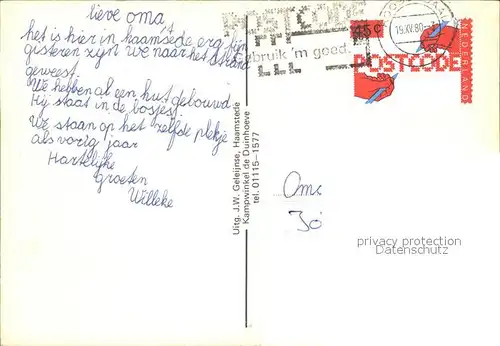 lieve oma
het is hier in haamsede erg fijn
gisteren zijn we naar het strand
geweest.
We hebben al een hut gebouwd
Hij staat in de bosjes.
We staan op het zelfde plekje
als vorig jaar
Hartelijke
groeten
Willeke
Uitg. J.W. Geleijnse, Haamstede
Kampwinkel de Duinhoeve
tel. 01115-1577
POSTCODE
gebruik 'm goed.
45c
POSTCODE
NEDERLAND
Oma
Jo
privacy protection
Datenschutz